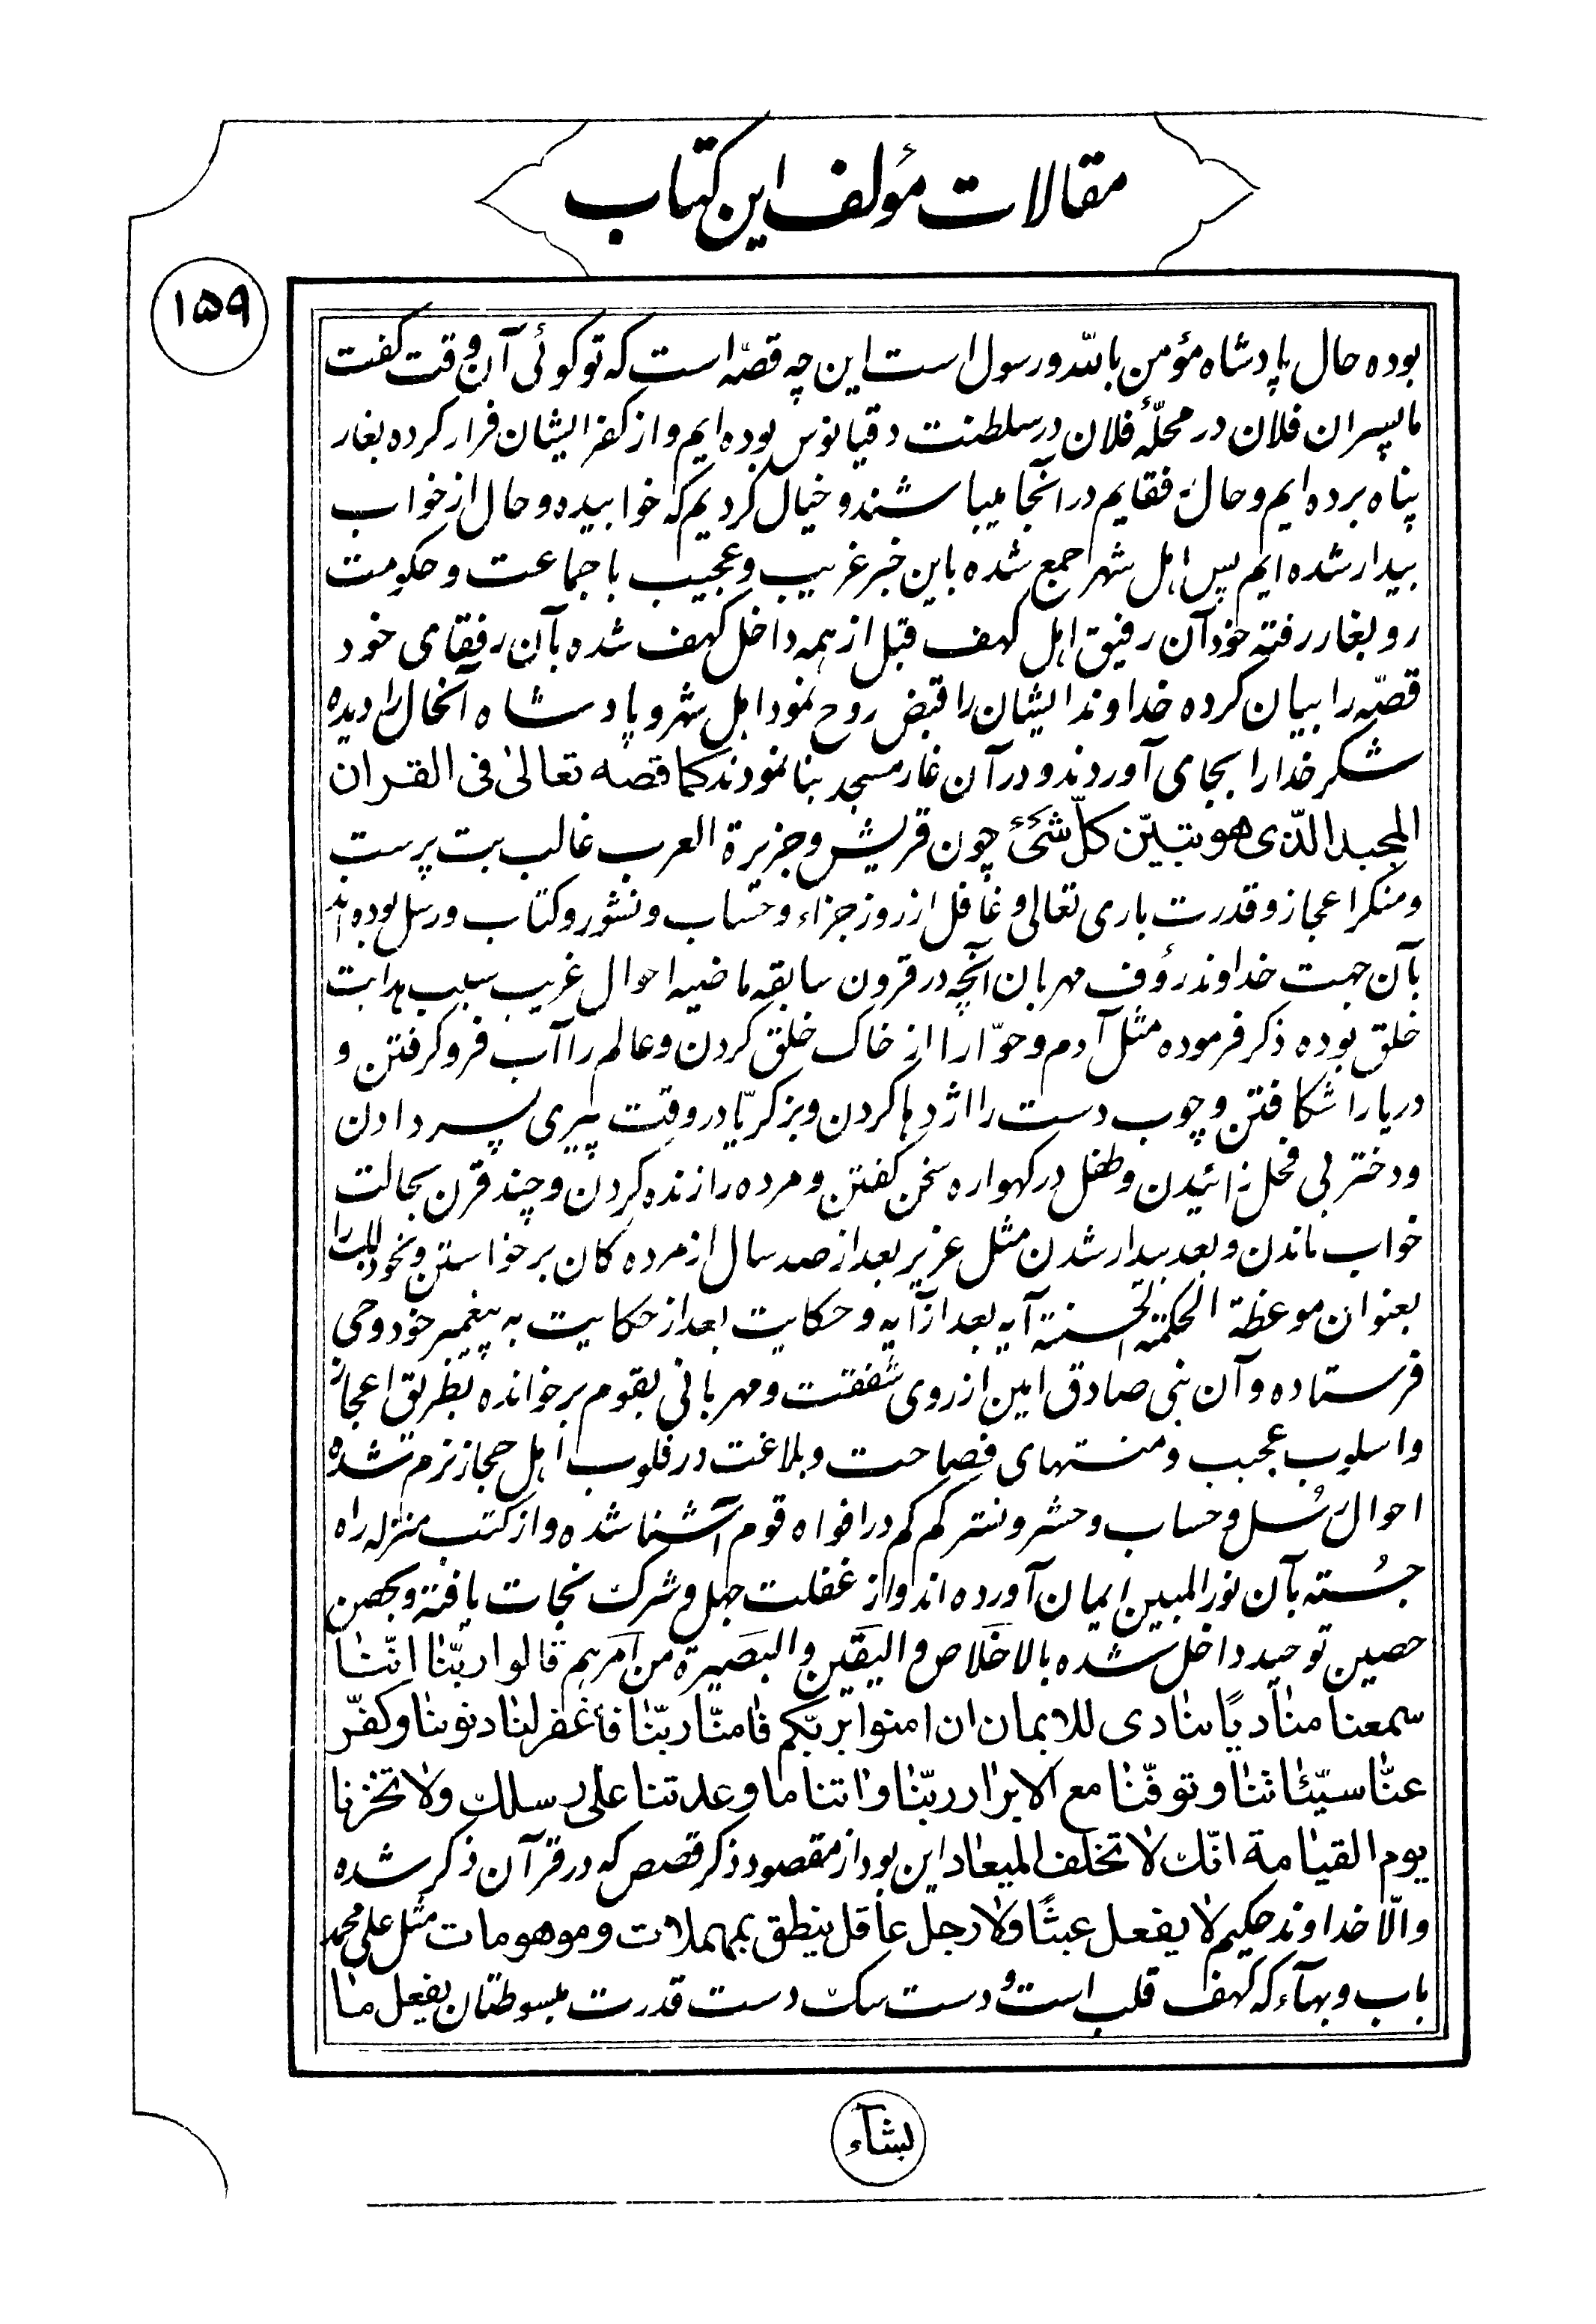 مقالات مؤلف این کتاب
۱۵۹
بوده حال پادشاه مؤمن بالله و رسول است این چه قصّه است که تو گوئی آن وقت گفت
ما پسران فلان در محلّهٔ فلان در سلطنت دقیانوس بوده ایم و از کفر ایشان فرار کرده بغار
پناه برده ایم و حال رفقایم در آنجا میباشند و خیال کردیم که خوابیده و حال از خواب
بیدار شده ایم پس اهل شهر جمع شده باین خبر غریب و عجیب با جماعت و حکومت
رو بغار رفته خود آن رفیق اهل کهف قبل از همه داخل کهف شده بآن رفقای خود
قصّه را بیان کرده خداوند ایشان را قبض روح نمود اهل شهر و پادشاه آنحال را دیده
شکر خدا را بجای آوردند و در آن غار مسجد بنا نمودند کما قصه تعالیٰ فی القران
المجید الّذی هو یتبیّن کلّ شیء چون قریش و جزیرة العرب غالب بت پرست
و منکر اعجاز و قدرت باری تعالی و غافل از روز جزاء و حساب و نشور و کتاب و رسل بوده اند
بآن جهت خداوند رؤف مهربان آنچه در قرون سابقه ماضیه احوال غریب سبب هدایت
خلق بوده ذکر فرموده مثل آدم و حوّا را از خاک خلق کردن و عالم را آب فرو گرفتن و
دریا را شکافتن و چوب دست را اژدها کردن و بزکریّا در وقت پیری پسر دادن
و دختر بی فحل زائیدن و طفل در گهواره سخن گفتن و مرده را زنده کردن و چند قرن بحالت
خواب ماندن و بعد بیدار شدن مثل عزیر بعد از صد سال از مرده کان برخواستن و نحو ذلک را
بعنوان موعظة الحکمة الحسنة آیه بعد از آیه و حکایت بعد از حکایت به پیغمبر خود وحی
فرستاده و آن نبی صادق امین از روی شفقت و مهربانی بقوم برخوانده بطریق اعجاز
و اسلوب عجیب و منتهای فصاحت و بلاغت در قلوب اهل حجاز نرم شده
احوال رُسل و حساب و حشر و نشر کم کم در افواه قوم آشنا شده و از کتب منزله راه
جُسته بآن نور المبین ایمان آورده اند و از غفلت جهل و شرک نجات یافته و بحصن
حصین توحید داخل شده بالاخلاص و الیقین و البصیرة من امرهم قالوا ربّنا انّنا
سمعنا منادیًا ینادی للایمان ان امنوا بربّکم فامنّا ربّنا فاغفر لنا ذنوبنا و کفّر
عنّا سیّئاتنا و توفّنا مع الابرار ربّنا و اتنا ما وعدتنا علی رسلک ولا تخزنا
یوم القیامة انّک لا تخلف المیعاد این بود از مقصود ذکر قصص که در قرآن ذکر شده
و الّا خداوند حکیم لا یفعل عبثًا ولا رجل عاقل ینطق بمهملات و موهومات مثل علی محمد
باب و بهآء که کهف قلب است و دست سک دست قدرت مبسوطتان یفعل ما
یشآء